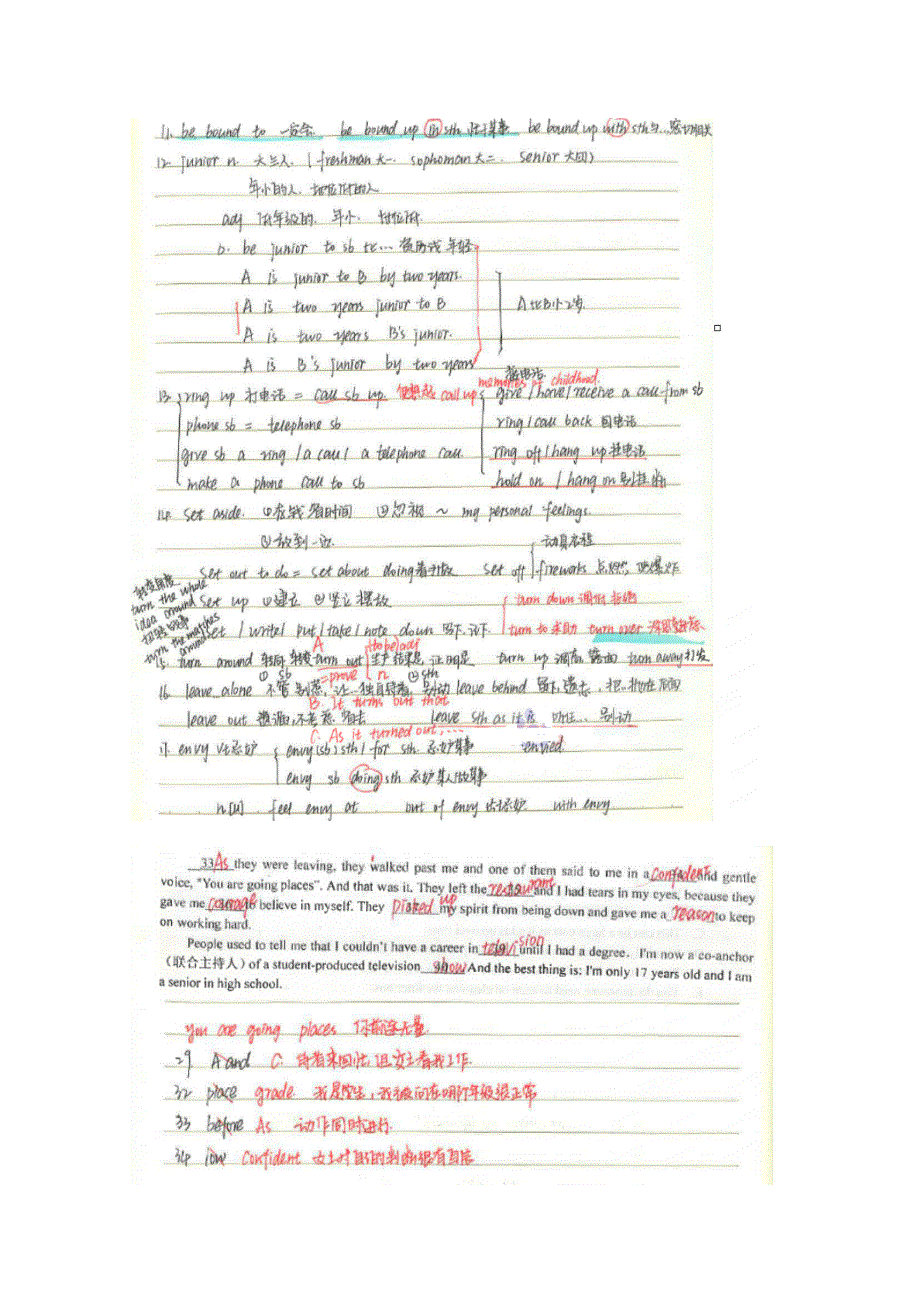 11. be bound to 一定会 be bound up in sth 忙于某事 be bound up with sth 与…密切相关
12 junior n. 大三人. (freshman 大一. sophoman 大二. senior 大四)
年小的人. 地位低的人
adj 低年级的. 年小. 地位低.
b. be junior to sb 比…资历浅 年轻
A is junior to B by two years.
A is two years junior to B
A is two years B's junior.
A is B's junior by two years
A比B小2岁.
13. ring up 打电话 = call sb up. 使想起 call up memories of childhood.
phone sb = telephone sb
give sb a ring / a call / a telephone call
make a phone call to sb
接电话
give / have / receive a call from sb
ring / call back 回电话
ring off / hang up 挂电话
hold on / hang on 别挂断
14. set aside. ①存钱 省时间 ②忽视 ~ my personal feelings.
③放到一边
set out to do = set about doing 着手做 set off 动身启程
fireworks 点燃, 使爆炸
set up ①建立 ②竖立 摆放
set / write / put / take / note down 写下, 记下
turn down 调低 拒绝
turn to 求助 turn over
turn the whole idea around
turn the matches around
15. turn around 转身 转变 turn out 生产 结果是, 证明是 turn up 调高 露面 turn away 打发
A (to be) adj
n
① sb ② sth
= prove
B. It turns out that
C. As it turned out, …
16. leave alone 不管 别惹, 让…独自待着, 别动 leave behind 留下, 遗忘, 把…抛在后面
leave out 遗漏, 不考虑 leave sth as it is, 别动
17. envy vt 忌妒 envy (sb) sth / for sth 忌妒某事 envied
envy sb doing sth 忌妒某人做某事
n [U] feel envy at out of envy 出于忌妒 with envy
33 As they were leaving, they walked past me and one of them said to me in a confident and gentle
voice, "You are going places". And that was it. They left the restaurant and I had tears in my eyes, because they
gave me courage to believe in myself. They picked up my spirit from being down and gave me a reason to keep
on working hard.
People used to tell me that I couldn't have a career in television until I had a degree. I'm now a co-anchor
(联合主持人) of a student-produced television show And the best thing is: I'm only 17 years old and I am
a senior in high school.
you are going places 你前途无量.
29 A and C. 女士看我工作.
32 place grade. 我是学生, 我被问在哪个年级很正常
33 before As 动作同时进行.
34 low confident 女士对自己的判断很有自信